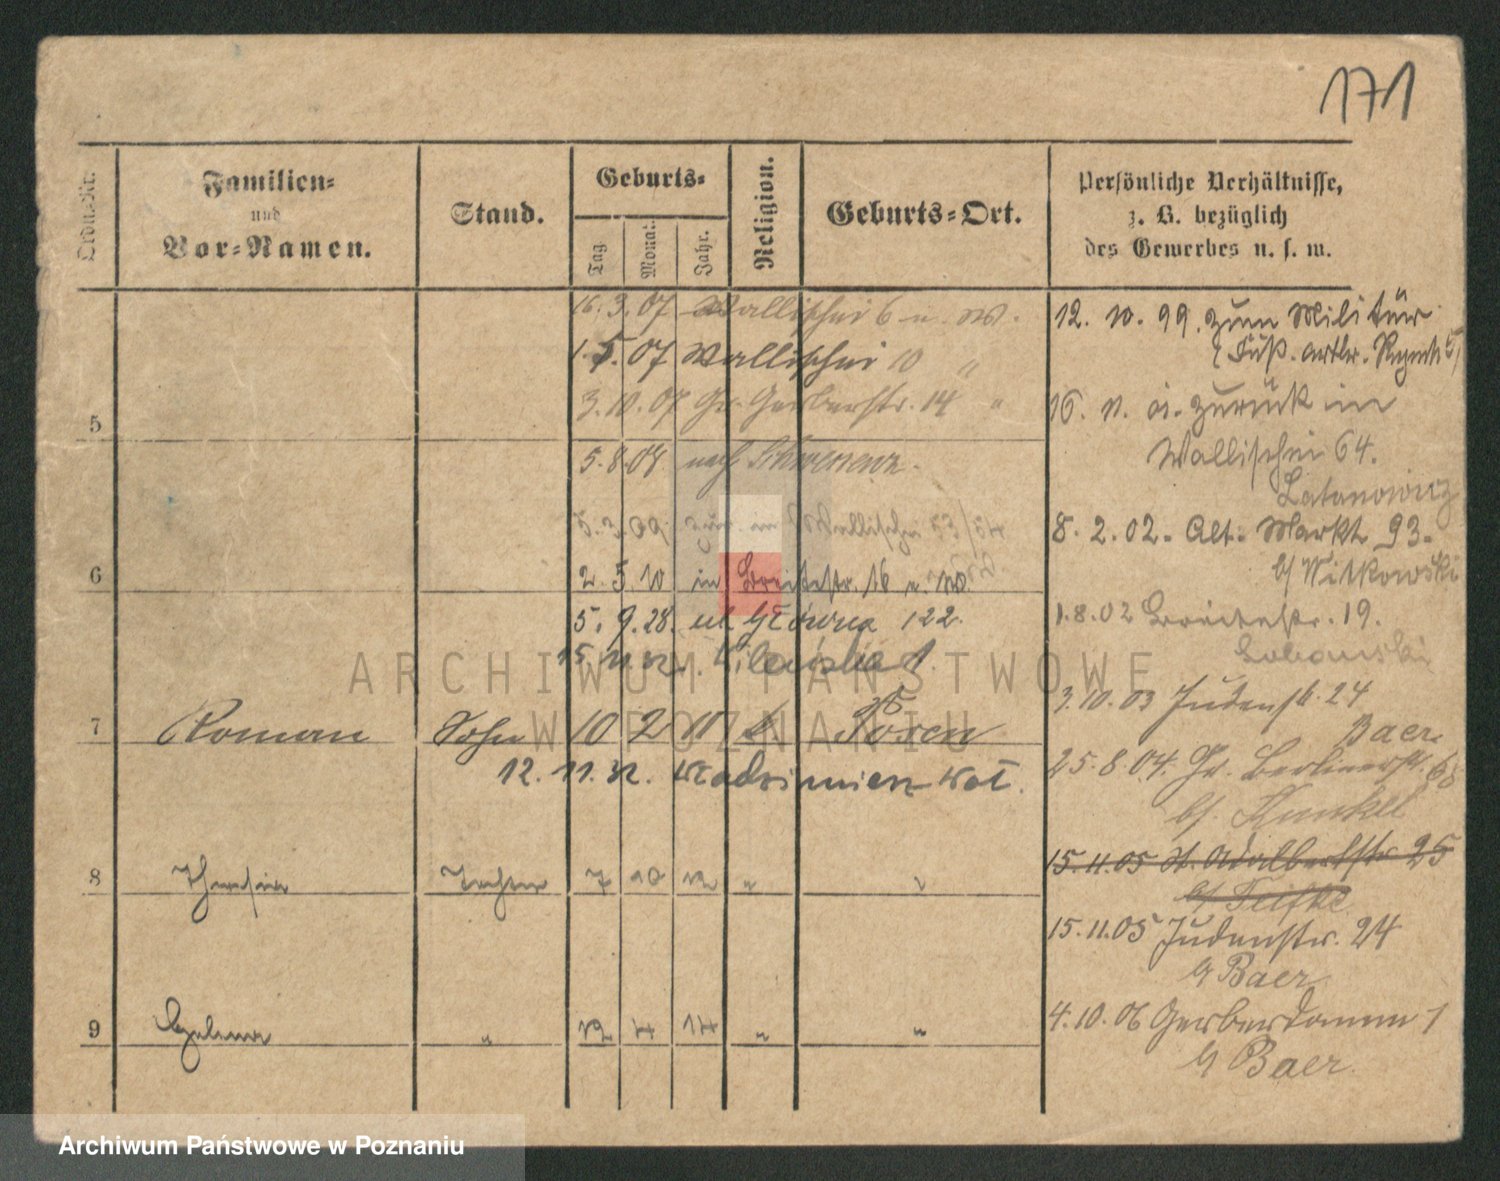 171
Ordn.-Nr.
Familien-
und
Vor-Namen.
Stand.
Geburts-
Tag
Monat.
Jahr.
Religion.
Geburts-Ort.
Persönliche Verhältnisse,
z. B. bezüglich
des Gewerbes u. s. w.
16. 3. 07 Wallischei 6 u. W.
1. 5. 07 Wallischei 10 "
3. 10. 07 Gr. Gerberstr. 14 "
5
5. 8. 08 nach Schwersenz.
5. 3. 09. Wallischei
6
2. 5. 10 in Breitestr. 16 u. W.
5. 9. 28. ul. Główna 122.
7 Roman Sohn 10 2 11 k Posen
12. 11. 32.
8 Tochter 7 10 12 " "
9 Helena " 12 4 14 " "
12. 10. 99. zum Militär
(Fuß. artlr. Regmt. 5)
16. 11. zurück in
Wallischei 64.
Latanowicz
8. 2. 02. Alt. Markt 93.
b/ Witkowski
1. 8. 02 Breitestr. 19.
3. 10. 03 Judenstr. 24
Baer
25. 8. 04. Gr. Berlinerstr.
b/. Kunkel
15. 11. 05 St. Adalbertstr. 25
15. 11. 05 Judenstr. 24
b/ Baer
4. 10. 06 Gerberdamm 1
b/ Baer
ARCHIWUM PAŃSTWOWE
W POZNANIU
Archiwum Państwowe w Poznaniu